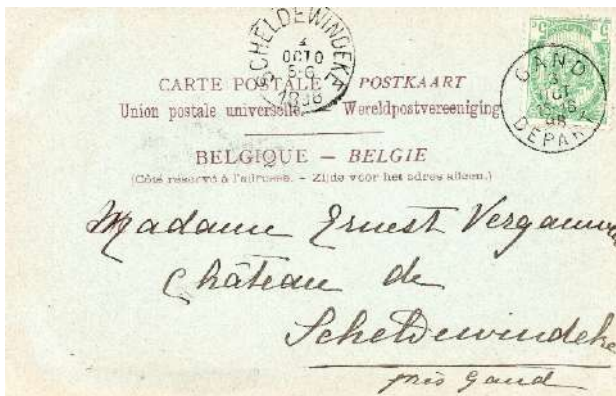 SCHELDEWINDEKE
4
OCTO
1898
5
5
GAND
3
15-16
98
DEPART
CARTE POSTALE – POSTKAART
Union postale universelle. – Wereldpostvereeniging.
BELGIQUE – BELGIE
(Côté réservé à l'adresse. – Zijde voor het adres alleen.)
Madame Ernest
Château de
Scheldewindeke
près Gand